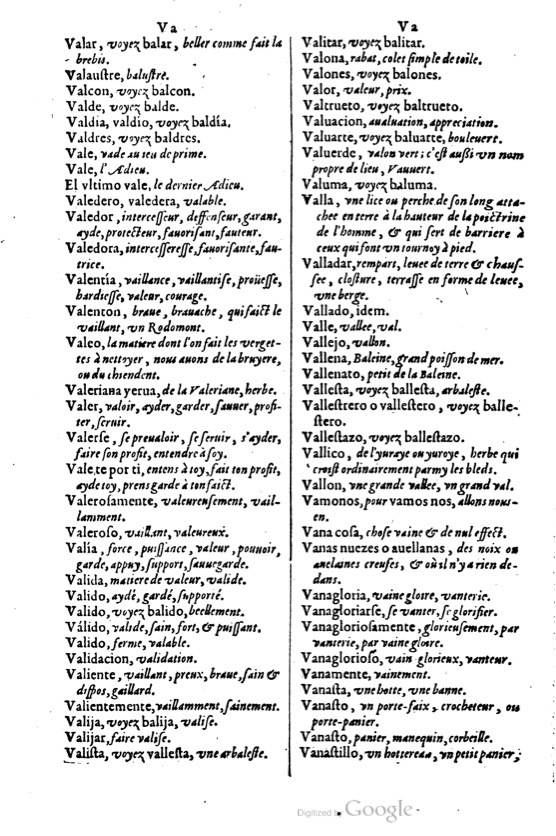 Va
Valar, voyez balar, beller comme fait la
brebis.
Valauſtre, baluſtre.
Valcon, voyez balcon.
Valde, voyez balde.
Valdia, valdio, voyez baldía.
Valdres, voyez baldres.
Vale, vade au ieu de prime.
Vale, l'Adieu.
El vltimo vale, le dernier Adieu.
Valedero, valedera, valable.
Valedor, interceſſeur, deffenſeur, garant,
ayde, protecteur, fauoriſant, fauteur.
Valedora, interceſſereſſe, fauoriſante, fau-
trice.
Valentía, vaillance, vaillantiſe, proüeſſe,
hardieſſe, valeur, courage.
Valenton, braue, brauache, qui faict le
vaillant, vn Rodomont.
Valeo, la matiere dont l'on fait les verget-
tes à nettoyer, nous auons de la bruyere,
ou du chiendent.
Valeriana yerua, de la Valeriane, herbe.
Valer, valoir, ayder, garder, ſauuer, profi-
ter, ſeruir.
Valerſe, ſe preualoir, ſe ſeruir, s'ayder,
faire ſon profit, entendre à ſoy.
Vale, te por ti, entens à toy, fait ton profit,
ayde toy, prens garde à ton faict.
Valeroſamente, valeureuſement, vail-
lamment.
Valeroſo, vaillant, valeureux.
Valía, force, puiſſance, valeur, pouuoir,
garde, appuy, ſupport, ſauuegarde.
Valida, matiere de valeur, valide.
Valido, aydé, gardé, ſupporté.
Valido, voyez balido, beellement.
Válido, valide, ſain, fort, & puiſſant.
Valido, ferme, valable.
Validacion, validation.
Valiente, vaillant, preux, braue, ſain &
diſpos, gaillard.
Valientemente, vaillamment, ſainement.
Valija, voyez balija, valiſe.
Valijar, faire valiſe.
Valiſta, voyez valleſta, vne arbaleſte.
Va
Valitar, voyez balitar.
Valona, rabat, colet ſimple de toile.
Valones, voyez balones.
Valor, valeur, prix.
Valtrueto, voyez baltrueto.
Valuacion, aualuation, appreciation.
Valuarte, voyez baluarte, bouleuert.
Valuerde, valon vert: c'eſt auſſi vn nom
propre de lieu, Vauuert.
Valuma, voyez baluma.
Valla, vne lice ou perche de ſon long atta-
chee en terre à la hauteur de la poictrine
de l'homme, & qui ſert de barriere à
ceux qui font vn tournoy à pied.
Valladar, rempart, leuee de terre & chauſ-
ſee, cloſture, terraſſe en forme de leuee,
vne berge.
Vallado, idem.
Valle, vallee, val.
Vallejo, vallon.
Vallena, Baleine, grand poiſſon de mer.
Vallenato, petit de la Baleine.
Valleſta, voyez balleſta, arbaleſte.
Valleſtrero o valleſtero, voyez balle-
ſtero.
Valleſtazo, voyez balleſtazo.
Vallico, de l'yuraye ou yuroye, herbe qui
croiſt ordinairement parmy les bleds.
Vallon, vne grande vallee, vn grand val.
Vamonos, pour vamos nos, allons nous-
en.
Vana coſa, choſe vaine & de nul effect.
Vanas nuezes o auellanas, des noix ou
auelaines creuſes, & où il n'y a rien de-
dans.
Vanagloria, vaine gloire, vanterie.
Vanagloriarſe, ſe vanter, ſe glorifier.
Vanaglorioſamente, glorieuſement, par
vanterie, par vaine gloire.
Vanaglorioſo, vain-glorieux, vanteur.
Vanamente, vainement.
Vanaſta, vne hotte, vne banne.
Vanaſto, vn porte-faix, crocheteur, ou
porte-panier.
Vanaſto, panier, manequin, corbeille.
Vanaſtillo, vn hottereau, vn petit panier,
Digitized by Google